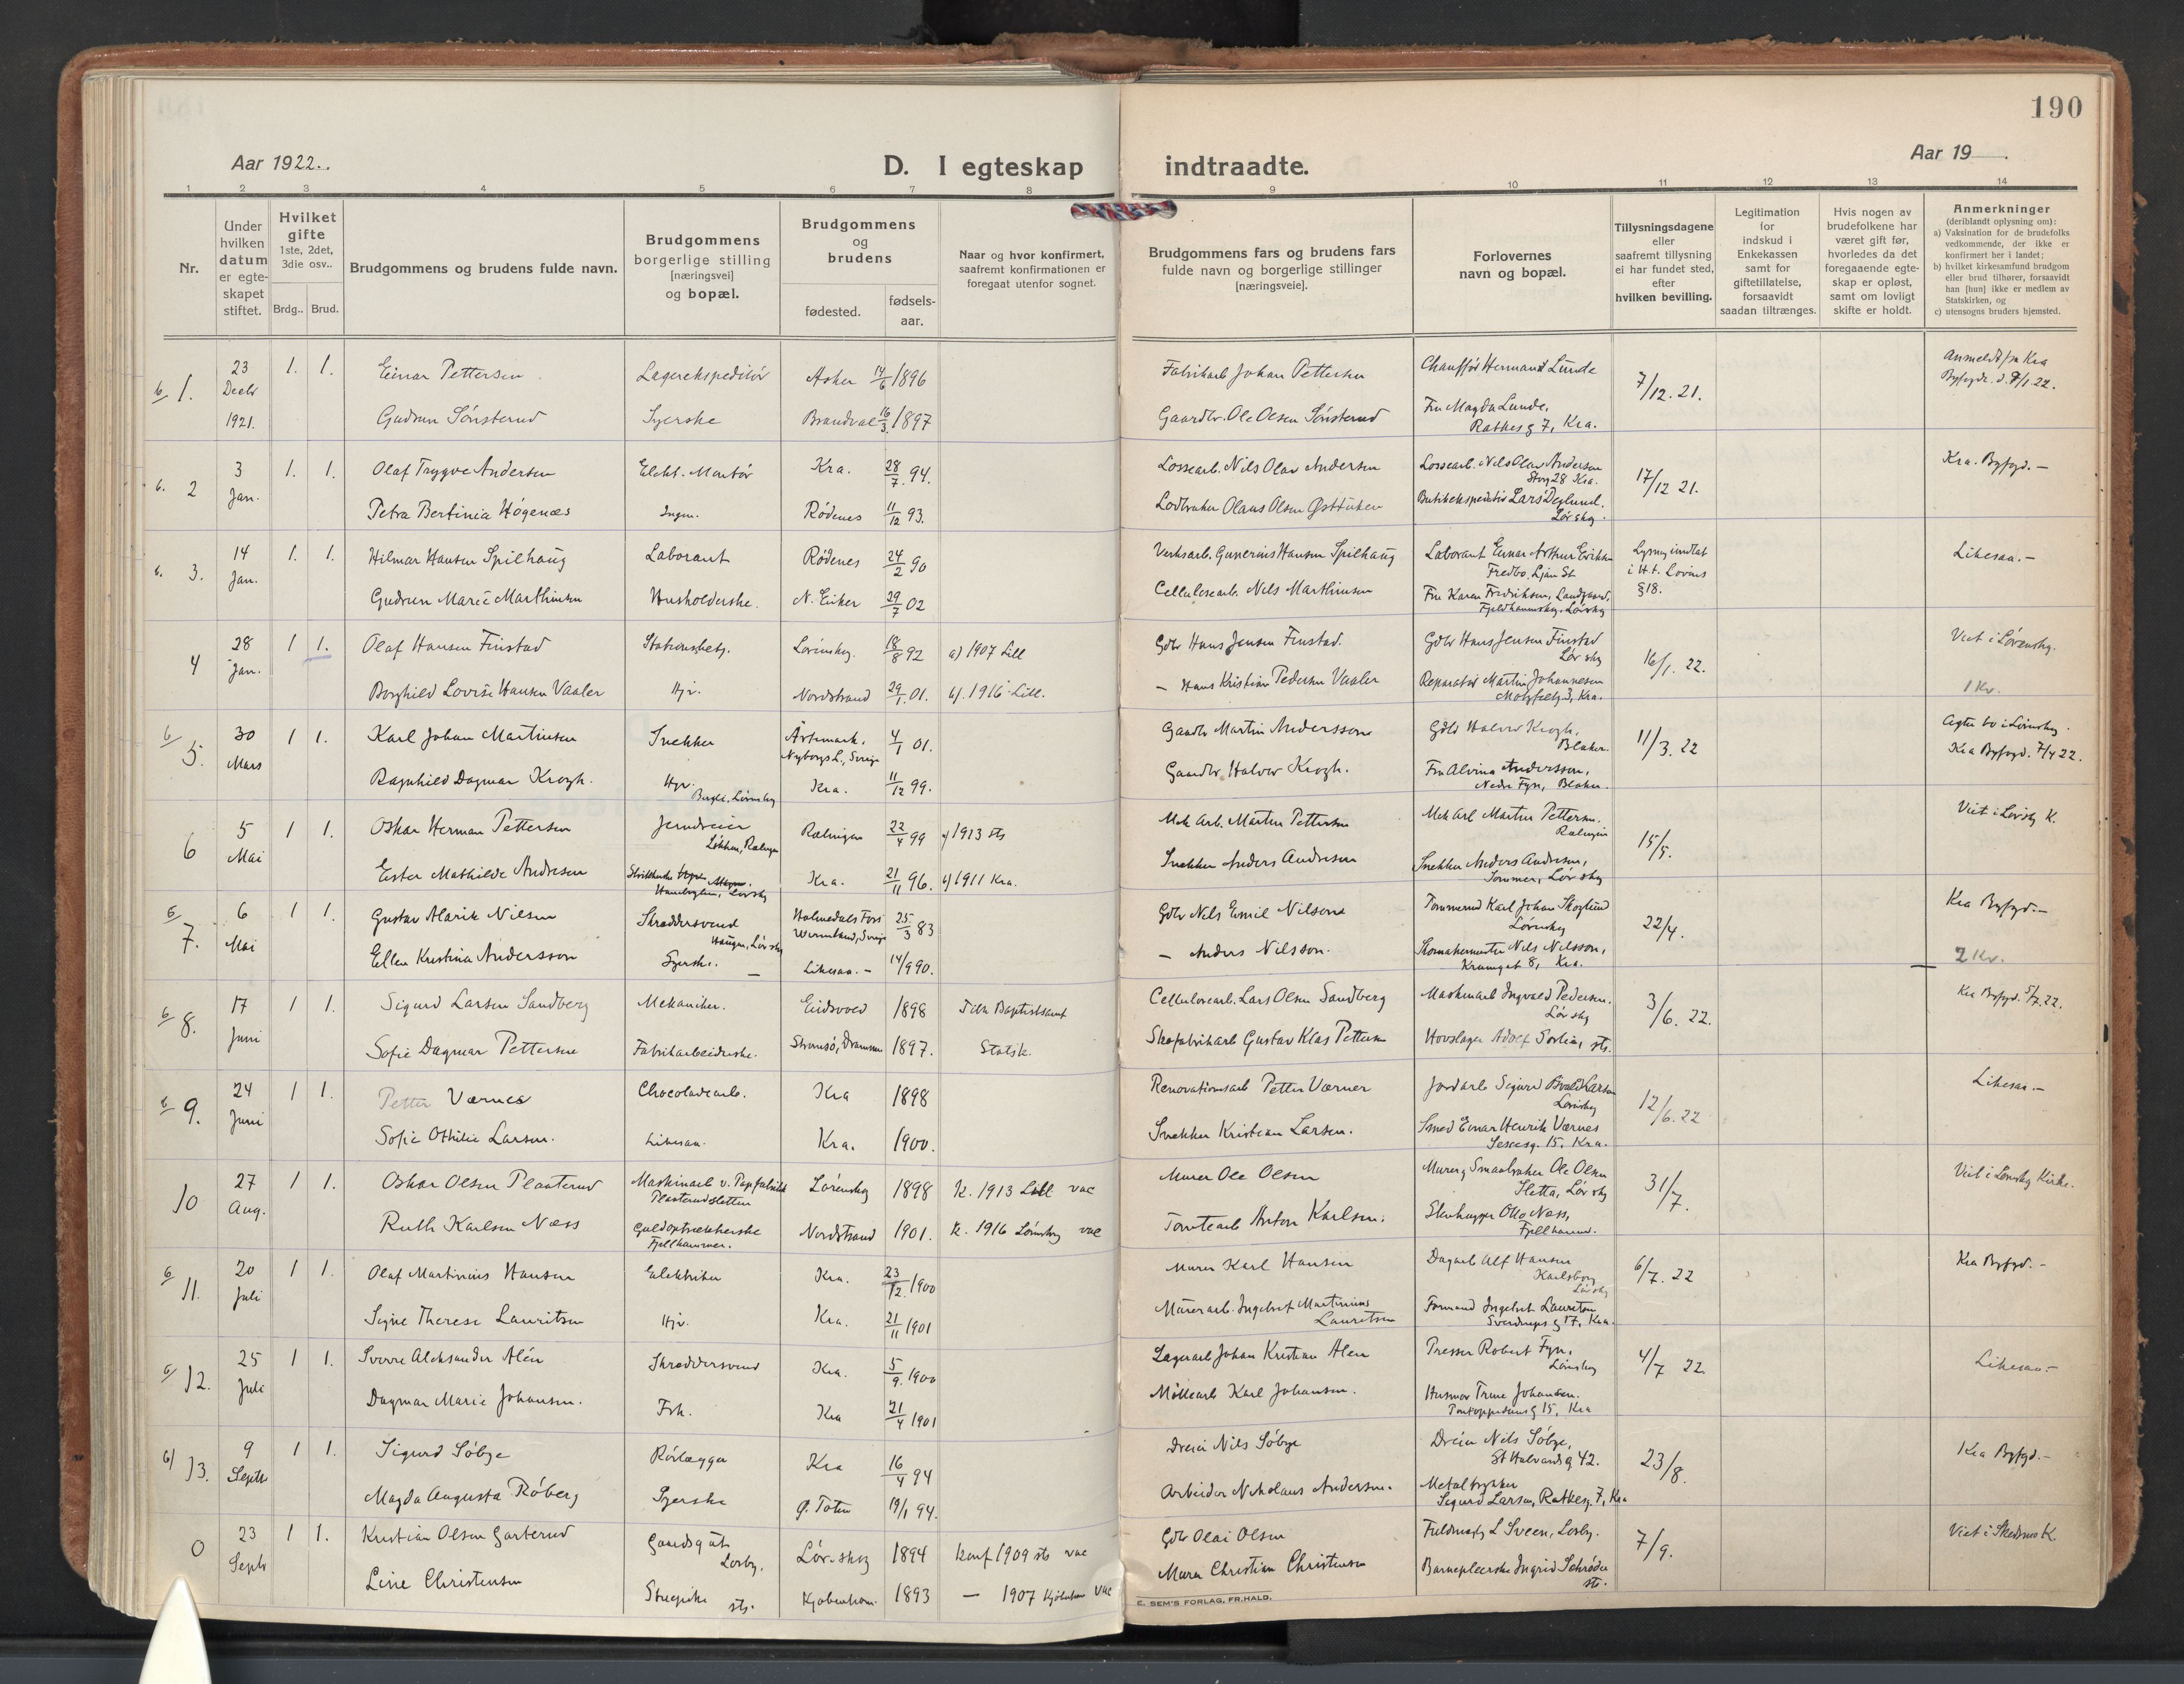 190
Aar 1922.
D. I egteskap indtraadte.
Aar 19 .
1 2 3 4 5 6 7 8 9 10 11 12 13 14
Nr.
Under
hvilken
datum
er egte-
skapet
stiftet.
Hvilket
gifte
1ste, 2det,
3die osv..
Brdg.. Brud.
Brudgommens og brudens fulde navn.
Brudgommens
borgerlige stilling
[næringsvei]
og bopæl.
Brudgommens
og
brudens
fødested.
fødsels-
aar.
Naar og hvor konfirmert,
saafremt konfirmationen er
foregaat utenfor sognet.
Brudgommens fars og brudens fars
fulde navn og borgerlige stillinger
[næringsveie].
Forlovernes
navn og bopæl.
Tillysningsdagene
eller
saafremt tillysning
ei har fundet sted,
efter
hvilken bevilling.
Legitimation
for
indskud i
Enkekassen
samt for
giftetillatelse,
forsaavidt
saadan tiltrænges.
Hvis nogen av
brudefolkene har
været gift før,
hvorledes da det
foregaaende egte-
skap er opløst,
samt om lovligt
skifte er holdt.
Anmerkninger
(deriblandt oplysning om):
a) Vaksination for de brudefolks
vedkommende, der ikke er
konfirmert her i landet;
b) hvilket kirkesamfund brudgom
eller brud tilhører, forsaavidt
han [hun] ikke er medlem av
Statskirken, og
c) utensogns bruders hjemsted.
6/ 1. 23 Decbr 1921. 1. 1.
Einar Pettersen Lagerekspeditør Asker 14/6 1896
Fabrikarb Johan Pettersen Chauffør Herman Lunde 7/12. 21.
Anmeldt fra Kra
Byfogd.
Gudrun Sönsterud Syerske Brandval 16/3. 1897
Gaardbr. Ole Olsen Sönsterud Fru Magda Lunde,
Rathkes g 7, Kra.
6. 2 3 Jan. 1. 1.
Olaf Trygve Andersen Elekt. Montör Kra. 28/7. 94.
Lossearb. Nils Olav Andersen Lossearb. Nils Olav Andersen
Storg 28 Kra. 17/12 21. Kra. Byfogd. —
Petra Bertinia Högenæs Ingen. Rödenes 11/12 93.
Olaus Olsen Lars
Lörskog.
6. 3. 14 Jan. 1. 1.
Hilmar Hansen Spilhaug Laborant Rödenes 24/2 90
Verksarb. Gunerius Hansen Spilhaug Laborant Einar Arthur Eriksen
Fredbo, Ljan St Likesaa. —
Gudrun Marie Marthinsen Husholderske. N. Eiker 29/7 02
Cellulosearb. Nils Marthinsen Fru Karen Fredriksen,
§ 18.
4 28 Jan. 1 1.
Olaf Hansen Finstad Stationsbetj. Lörenskog. 18/8 92 a) 1907 Lill
Gdbr Hans Jensen Finstad. Gdbr Hans Jensen Finstad
Lörskog 16/1. 22. Viet i Lörenskog.
Borghild Lovise Hansen Vaaler Hjv. Nordstrand 29/1. 01. b). 1916 Lill.
— Hans Kristian Pedersen Vaaler Reparatör Martin Johannesen
Motzfeltg 3, Kra. 1 Kv.
6/ 5. 30 Mars 1 1.
Karl Johan Martinsen Snekker Årtemark,
Sverige 4/1 01.
Gaardbr Martin Andersson Gdbr Halvor Krogh,
Blaker. 11/3. 22 Agter bo i Lörenskog.
Kra Byfogd. 7/4 22.
Ragnhild Dagmar Krogh. Hjv.
Lörenskog Kra. 11/12 99.
Gaardbr. Halvor Krogh. Fru Alvina Andersson,
Blaker.
6 5 Mai 1 1.
Oskar Herman Pettersen Jerndreier
Lökken, Rælingen Rælingen 22/4 99 1913 sts
Mek Arb. Martin Pettersen Mek Arb Martin Pettersen.
Rælingen 15/5. Viet i Lörskog K.
Ester Mathilde Andresen
Lörskog Kra. 21/11 96. 1911 Kra.
Snekker Anders Andresen Snekker Anders Andresen,
Lörskog
6/ 7. 6 Mai 1 1.
Gustav Alarik Nilsen Skræddersvend
Haugen, Lörskog Holmedals Fors
Wermland, Sverige 25/3 83
Gdbr Nils Emil Nilsson Tömmermd Karl Johan Skoglund
Lörenskog 22/4. Kra Byfogd. —
Ellen Kristina Andersson Syerske. — Likesaa. — 14/9 90.
— Anders Nilsson. Skomakermester Nils Nilsson,
8, Kra. 2 Kv.
6/ 8. 17 Juni 1 1.
Sigurd Larsen Sandberg Mekaniker. Eidsvold 1898
Cellulosearb. Lars Olsen Sandberg Maskinarb Ingvald Pedersen.
Lörskog 3/6. 22. Kra Byfogd. 5/7. 22.
Sofie Dagmar Pettersen Fabrikarbeiderske. Strømsö, Drammen 1897. Statsk.
Skofabrikarb Gustav Klas Pettersen Hovslager Adolf Sörlie, sts.
6/ 9. 24 Juni 1 1.
Petter Værnes Chocoladearb. Kra 1898
Renovationsarb Petter Værner Jordarb Sigurd Larsen
Lörenskog 12/6. 22 Likesaa. —
Sofie Othilie Larsen. Likesaa. Kra. 1900.
Snekker Kristian Larsen. Smed Einar Henrik Værnes
15, Kra.
10 27 Aug. 1 1.
Oskar Olsen Plasterud Maskinarb v. Papfabrikk
Plasterudsletten Lörenskog 1898 K. 1913 Lill vac
Murer Ole Olsen Murer, Smaabruker Ole Olsen
Sletta, Lörskog 31/7. Viet i Lörenskog Kirke.
Ruth Karlsen Næss
Fjellhammer. Nordstrand 1901. K. 1916 Lörenskog vac
Tomtearb Anton Karlsen. Stenhugger Otto Næss,
6/ 11. 20 Juli 1 1.
Olaf Martinius Hansen Elektriker Kra. 23/12. 1900
Murer Karl Hansen Dagarb Alf Hansen
Karlsborg
Lörskog 6/7. 22 Kra Byfogd. —
Signe Therese Lauritsen Hjv. Kra. 21/11 1901
Murerarb. Ingebret Martinius
Lauritsen Formand Ingebret Lauritsen
Sverdrups g 17, Kra.
6/ 12. 25 Juli 1 1.
Sverre Aleksander Alén Skræddersvend Kra. 5/9. 1900
Lagerarb Johan Kristian Alen Presser Robert Fyri,
Lörenskog 4/7 22. Likesaa. —
Dagmar Marie Johansen. Frk. Kra 21/4 1901
Möllearb Karl Johansen. Husmor Trine Johansen.
Pontoppidans g 15, Kra
6/ 13. 9 Septbr 1 1.
Sigurd Söbye Rörlægger Kra 16/4 94
Dreier Nils Söbye Dreier Nils Söbye,
St Halvards g 42. 23/8. Kra Byfogd. —
Magda Augusta Röberg Syerske Ö. Toten 19/1 94.
Arbeider Nikolaus Andersen. Metaltrykker
Sigurd Larsen, Rathkesg. 7, Kra
0 23 Septbr 1 1.
Kristian Olsen Garterud Gaardsgut
Losby. Lörenskog 1894 konf 1909 sts vac
Gdbr Olai Olsen L Sveen, Losby. 7/9. Viet i Skedsmo K.
Line Christensen Stuepike sts. Kjøbenhavn. 1893 — 1907 Kjøbenhavn vac
Murer Christian Christensen Barnepleierske Ingrid Schröder
sts.
E. SEM'S FORLAG, FR.HALD.